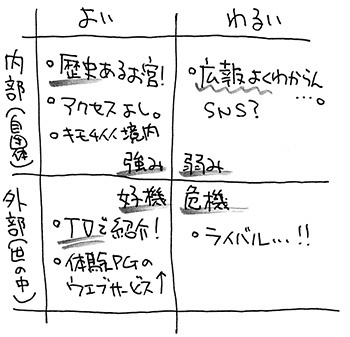 よい
わるい
内部(自団体)
・歴史あるお宮!
・アクセスよし。
・キモチイイ境内
強み
・広報よくわからん
….。
SNS?
弱み
外部(世の中)
好機
・TVで紹介!
・体験PGの
ウェブサービス↑
危機
・ライバル…!!